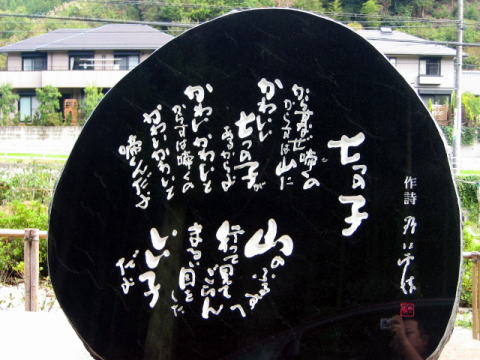 七つの子
作詩 野口雨情
からすなぜ啼くの
からすは山に
かわいい
七つの子が
あるからよ
かわいかわいと
からすは啼くの
かわいかわいと
啼くんだよ
山の
ふるすへ
行って見て
ごらん
まるい目をした
いい子
だよ